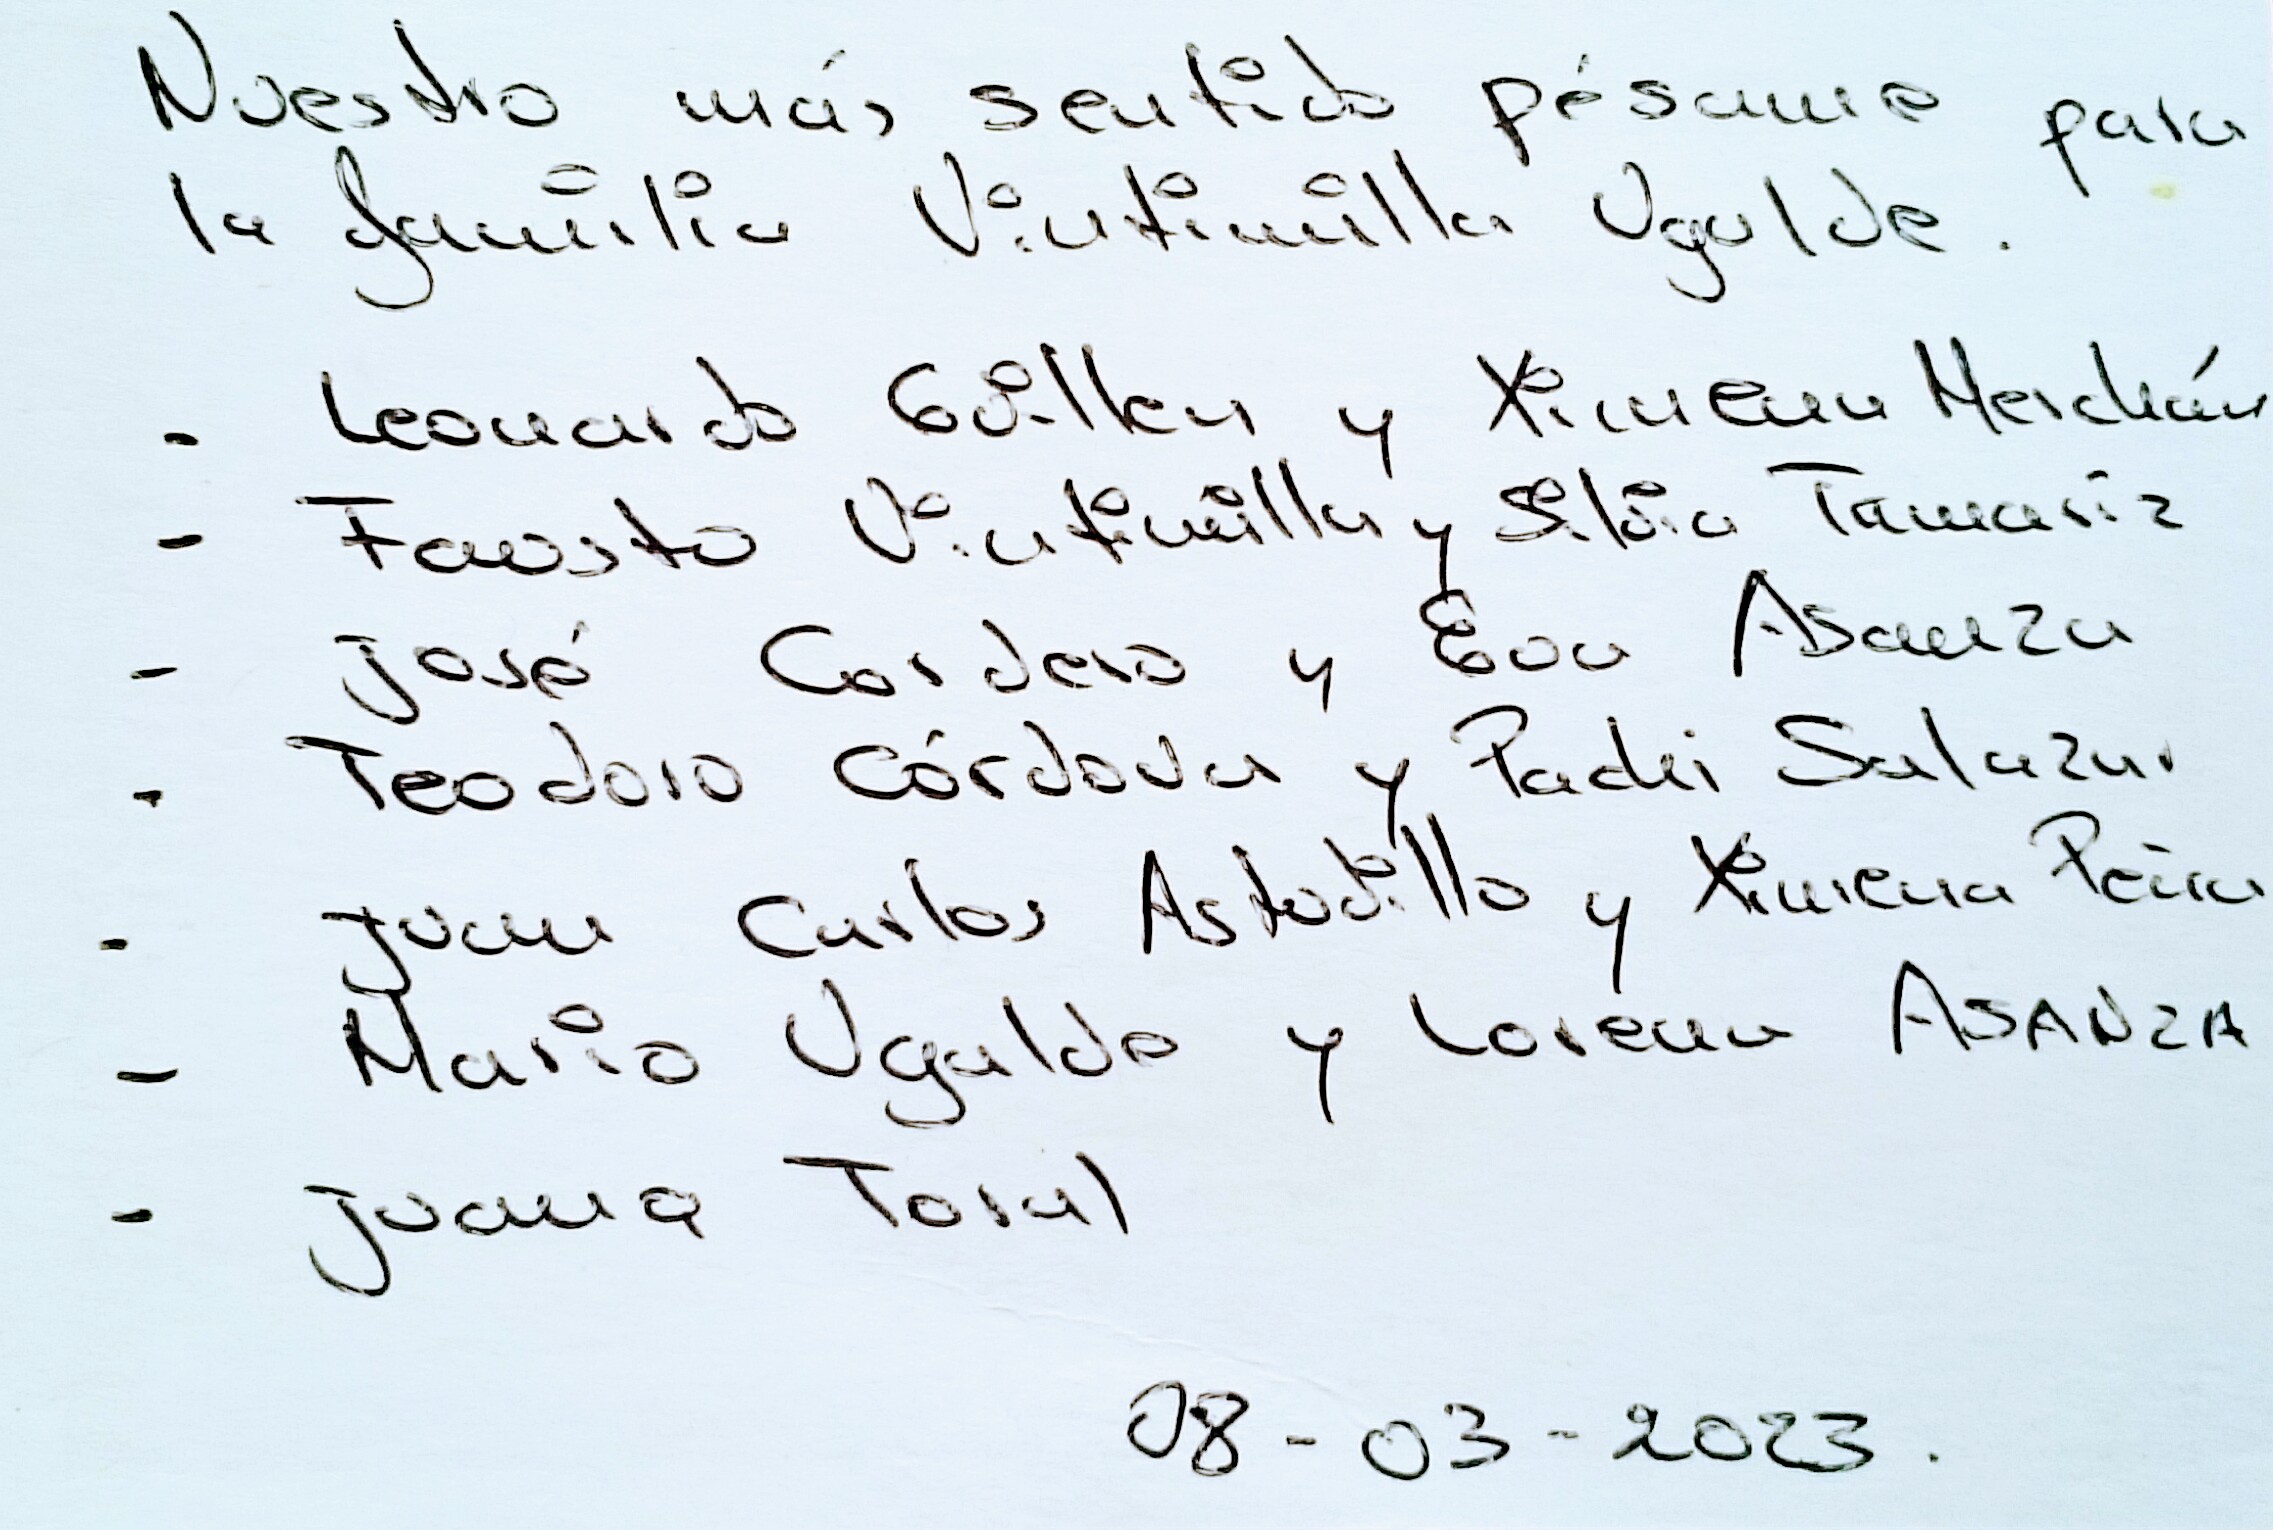 Nuestro más sentido pésame para
la familia Vintimilla Ugalde.
- Leonardo Guillen y Ximena Merchán
- Fausto Vintimilla y Silvia Tamariz
- José Cordero y Eva Asanza
- Teodoro Córdova y Pachi Salazar
- Juan Carlos Astudillo y Ximena Peña
- Mario Ugalde y Lorena ASANZA
- Juana Toral
08-03-2023.